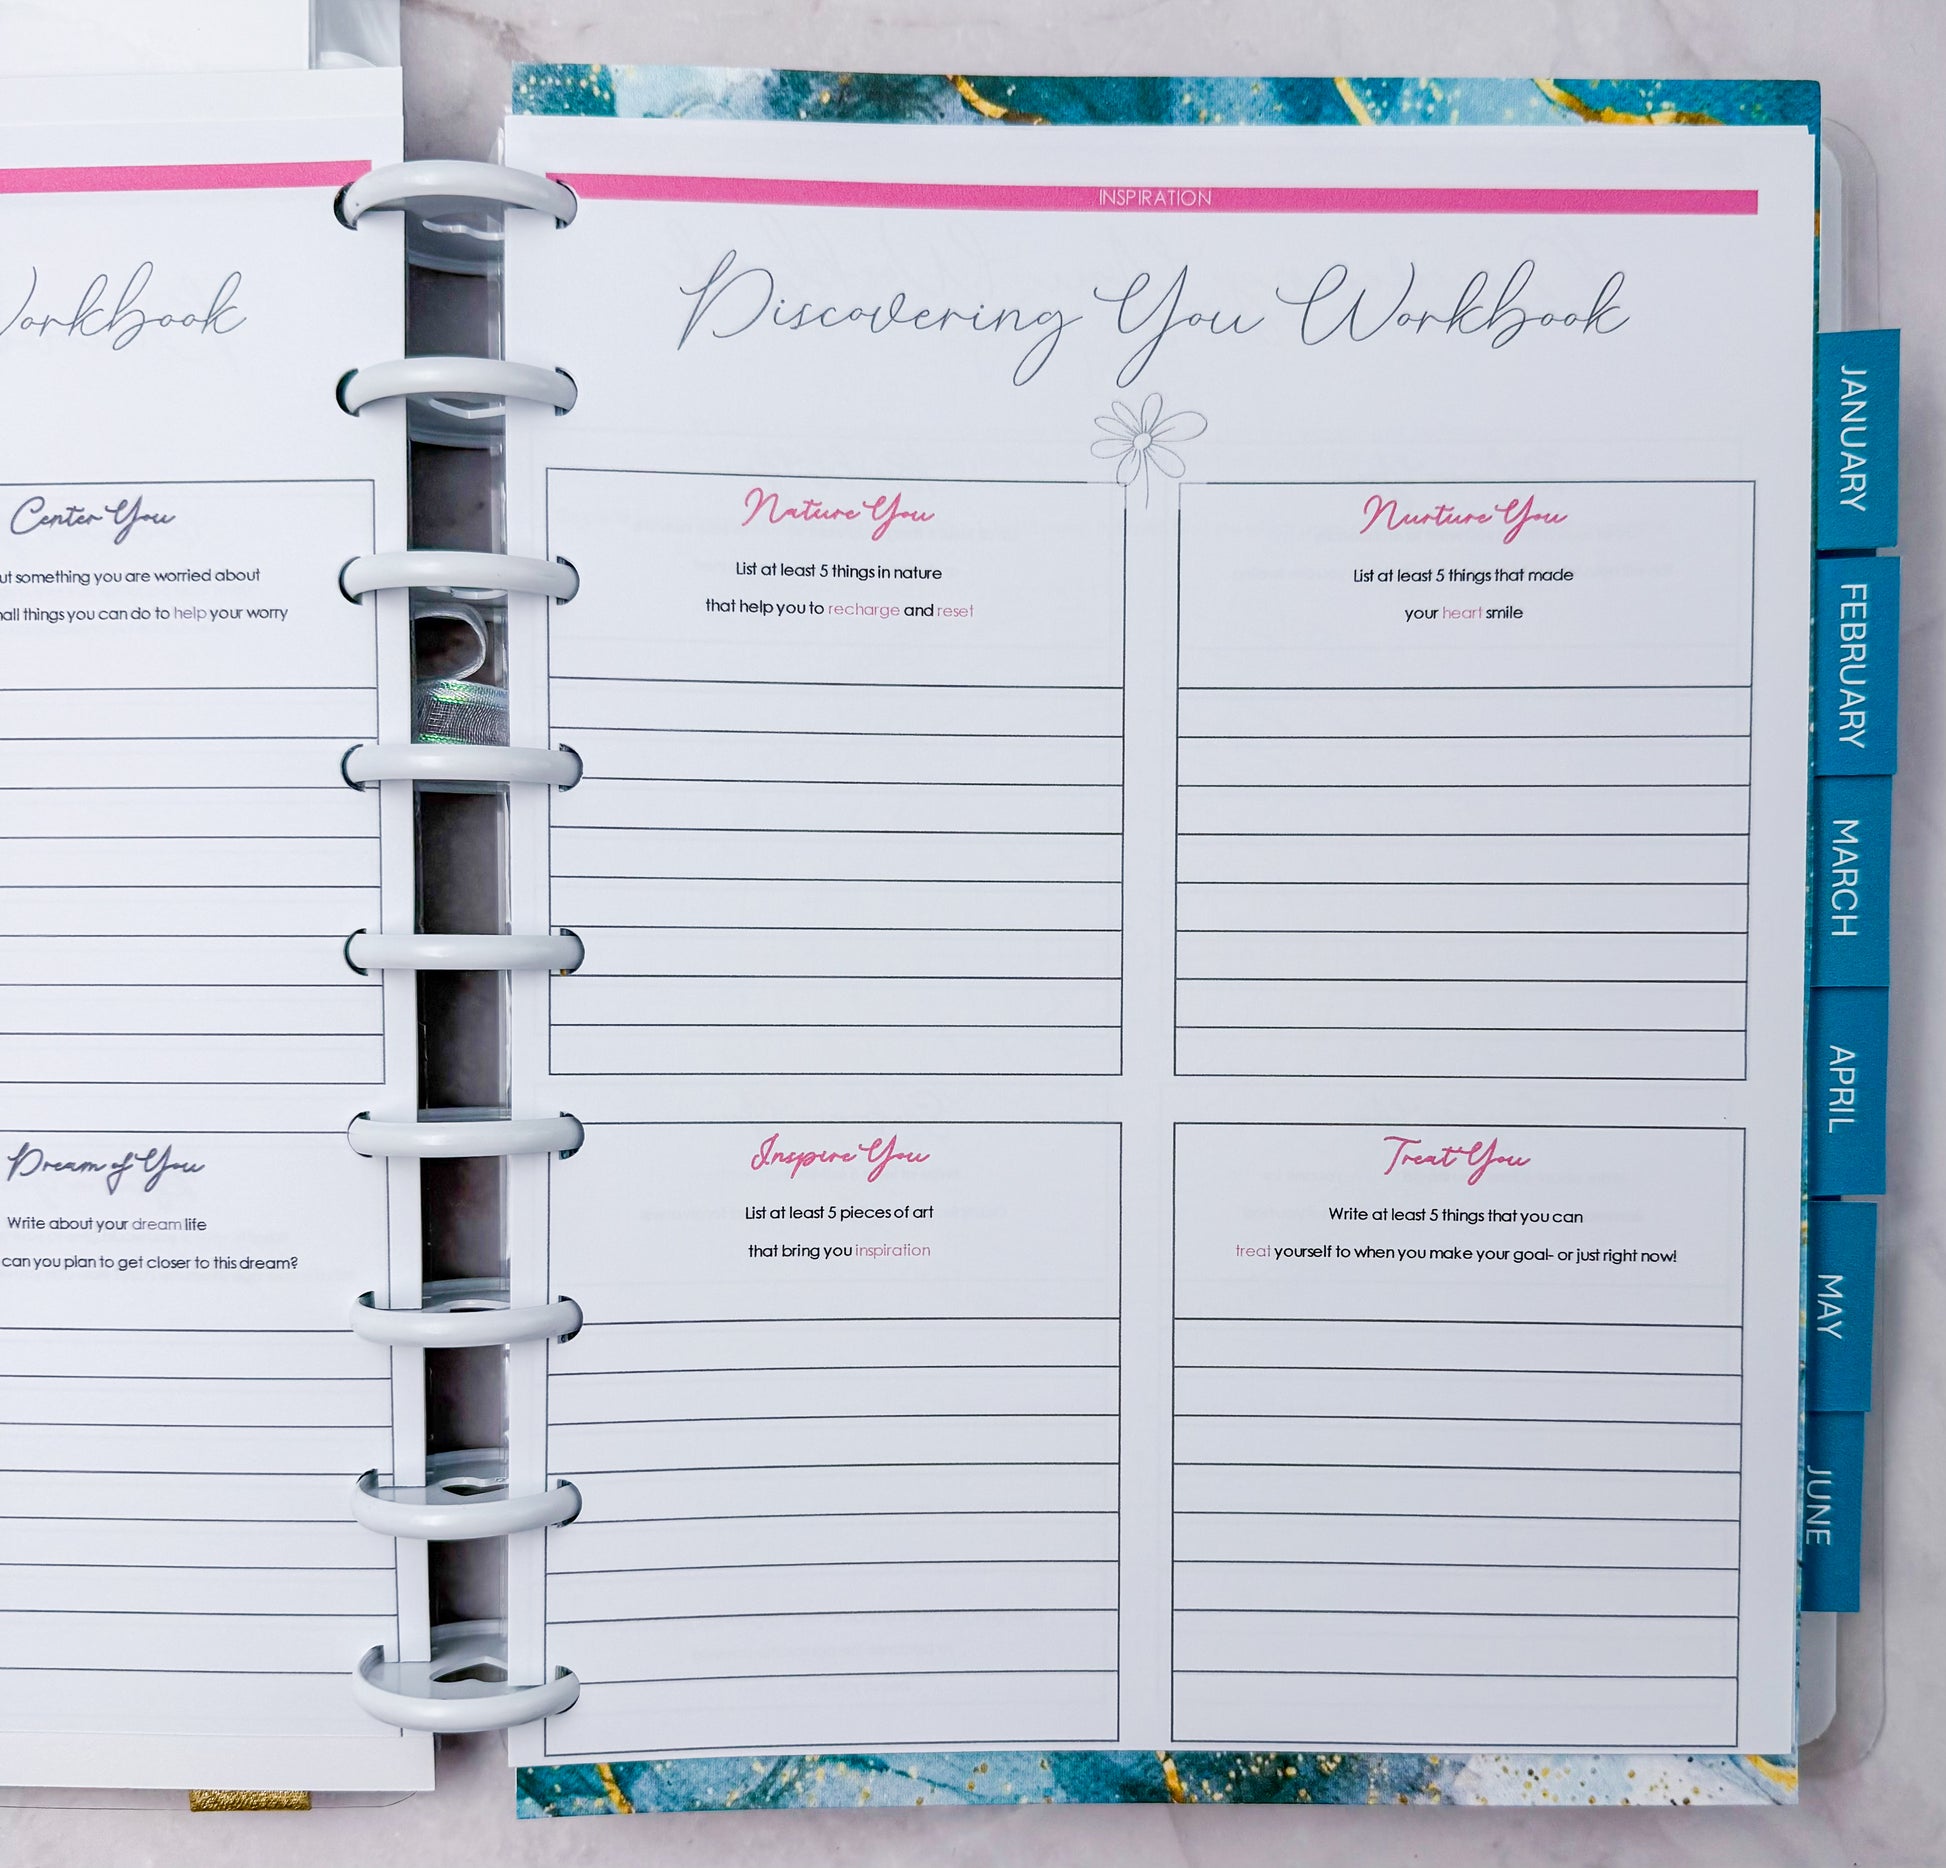 Workbook
Center You
something you are worried about
things you can do to help your worry
Dream of You
Write about your dream life
can you plan to get closer to this dream?
INSPIRATION
Discovering You Workbook
Nature You
List at least 5 things in nature
that help you to recharge and reset
Nurture You
List at least 5 things that made
your heart smile
Inspire You
List at least 5 pieces of art
that bring you inspiration
Treat You
Write at least 5 things that you can
treat yourself to when you make your goal- or just right now!
JANUARY
FEBRUARY
MARCH
APRIL
MAY
JUNE